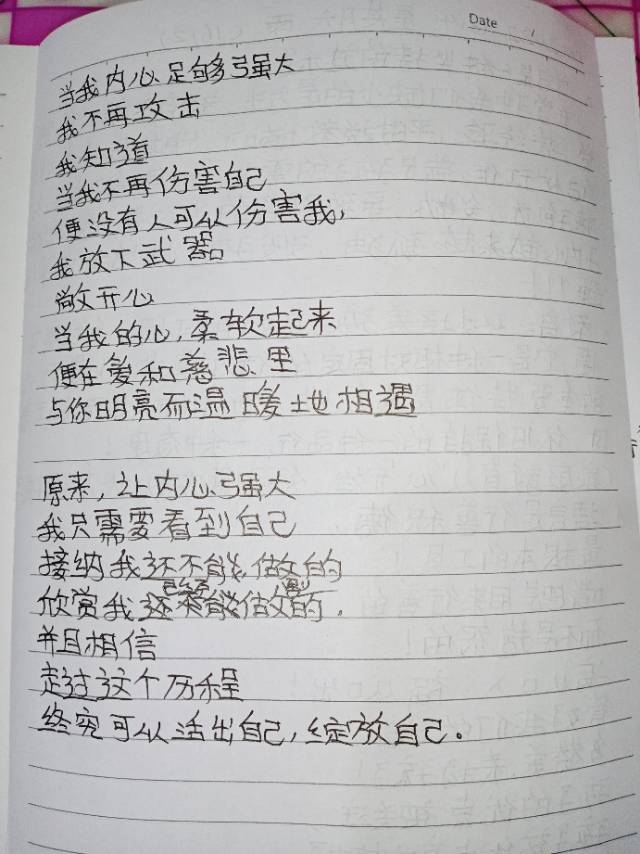 Date
当我内心足够强大
我不再攻击
我知道
当我不再伤害自己
便没有人可以伤害我,
我放下武器
敞开心
当我的心,柔软起来
便在爱和慈悲里
与你明亮而温暖地相遇
原来,让内心强大
我只需要看到自己
接纳我还不能做的
已经 到
欣赏我还不能做的.
并且相信
走过这个历程
终究可以活出自己,绽放自己。